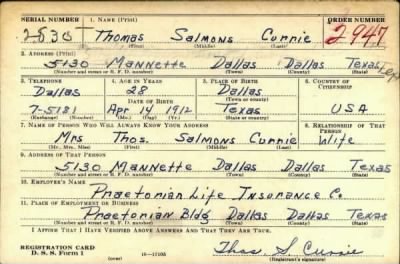 SERIAL NUMBER 1. NAME (Print) ORDER NUMBER
2530 Thomas Salmons Currie 2947
(First) (Middle) (Last)
2. ADDRESS (Print)
5130 Mannette Dallas Dallas Texas
(Number and street or R. F. D. number) (Town) (County) (State)
3. TELEPHONE 4. AGE IN YEARS 5. PLACE OF BIRTH 6. COUNTRY OF CITIZENSHIP
Dallas 28 Dallas
DATE OF BIRTH (Town or county)
7-5181 Apr 14 1912 Texas USA
(Exchange) (Number) (Mo.) (Day) (Yr.) (State or country)
7. NAME OF PERSON WHO WILL ALWAYS KNOW YOUR ADDRESS 8. RELATIONSHIP OF THAT PERSON
Mrs Thos. Salmons Currie Wife
(Mr., Mrs., Miss) (First) (Middle) (Last)
9. ADDRESS OF THAT PERSON
5130 Mannette Dallas Dallas Texas
(Number and street or R. F. D. number) (Town) (County) (State)
10. EMPLOYER'S NAME
Praetorian Life Insurance Co.
11. PLACE OF EMPLOYMENT OR BUSINESS
Praetorian Bldg Dallas Dallas Texas
(Number and street or R. F. D. number) (Town) (County) (State)
I AFFIRM THAT I HAVE VERIFIED ABOVE ANSWERS AND THAT THEY ARE TRUE.
REGISTRATION CARD
D. S. S. Form 1 16—17105 Thos. S. Currie
(Registrant's signature)